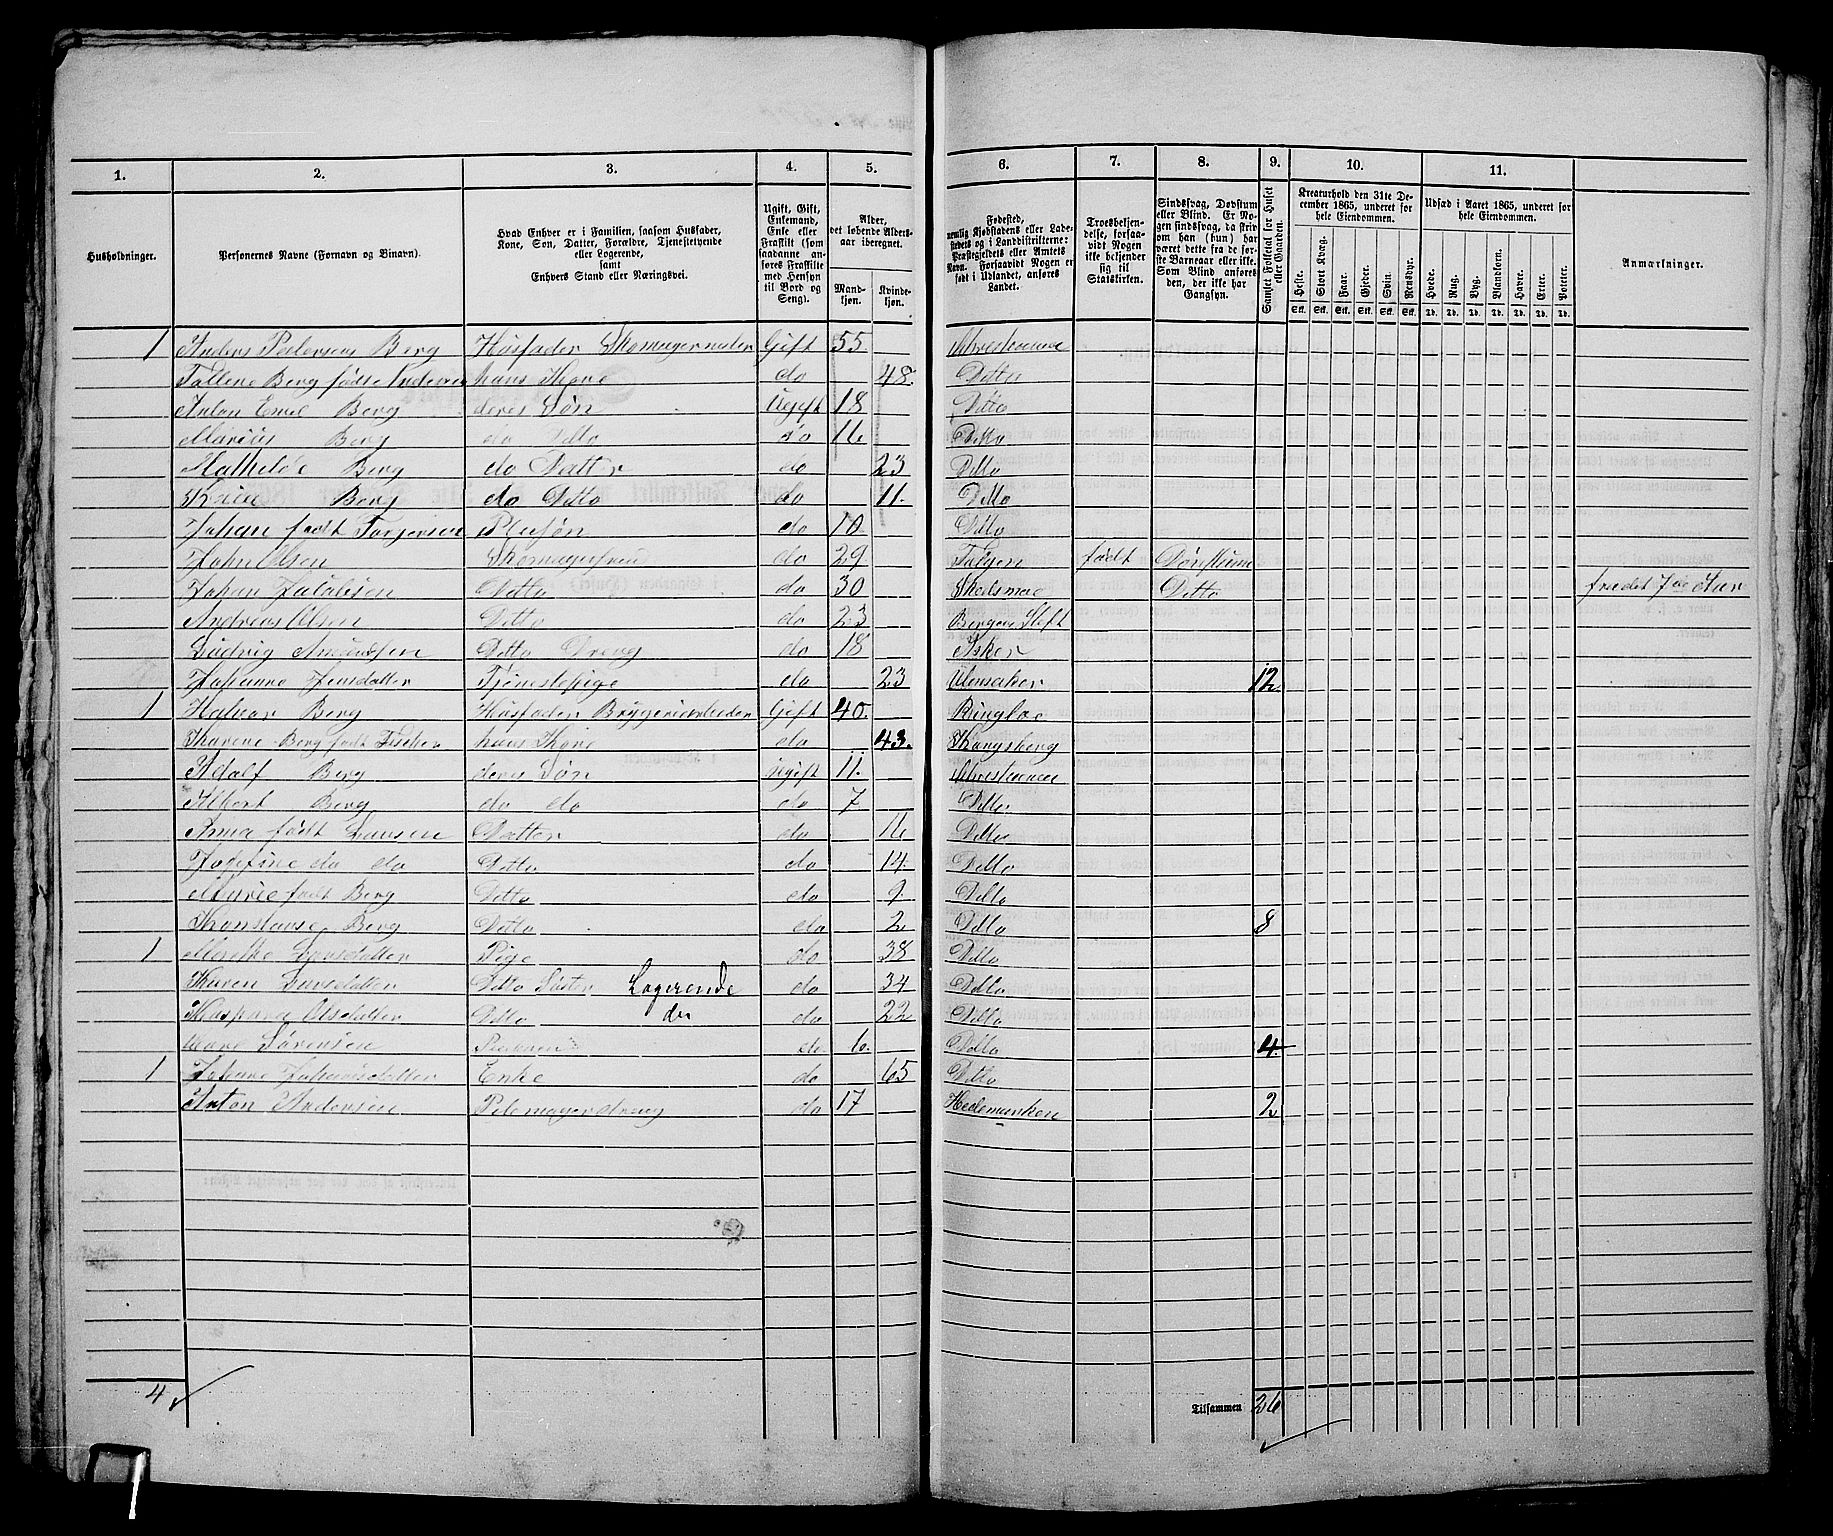 1. 2. 3. 4. 5. 6. 7. 8. 9. 10. 11.
Husholdninger.
Personernes Navne (Fornavn og Binavn).
Hvad Enhver er i Familien, saasom Husfader, Kone, Søn, Datter, Forældre, Tjenestetyende eller Logerende, samt Enhvers Stand eller Næringsvei.
Ugift, Gift, Enkemand, Enke eller Fraskilt (som saadanne anføres Fraskilte med Hensyn til Bord og Seng).
Alder, det løbende Aldersaar iberegnet.
Mandkjøn. Kvindekjøn.
Fødested, nemlig Kjøbstadens eller Ladestedets og i Landdistrikterne: Præstegjeldets eller Amtets Navn. Forsaavidt Nogen er født i Udlandet, anføres Landet.
Troesbekjendelse, forsaavidt Nogen ikke bekjender sig til Statskirken.
Sindssvag, Døvstum eller Blind. Er Nogen sindssvag, da skrives om han (hun) har været dette fra de første Barneaar eller ikke. Som Blind anføres den, der ikke har Gangsyn.
Samlet Folketal for Huset eller Gaarden.
Kreaturhold den 31te December 1865, underet for hele Eiendommen.
Heste. Stort Kvæg. Faar. Gjeder. Svin. Rensdyr.
Stk. Stk. Stk. Stk. Stk. Stk.
Udsæd i Aaret 1865, underet for hele Eiendommen.
Hvede. Rug. Byg. Blandkorn. Havre. Erter. Poteter.
Td. Td. Td. Td. Td. Td. Td.
Anmærkninger.
1 Anders Pedersen Berg Husfader Skomagermester Gift 55 Christiania
Berg født hans Kone do 48. Ditto
Anton Emil Berg deres Søn Ugift 18 Ditto
Marius Berg do Ditto do 16 Ditto
Mathilde Berg do Datter do 23 Ditto
Berg do Ditto do 11. Ditto
Johan født Torgersen Pleiesøn do 10 Ditto
John Olsen Skomagersvend do 29 født Døvstum
Johan Jakobsen Ditto do 30 Skedsmoe Ditto fra det 7de Aar
Andreas Olsen Ditto do 23 Bergens Stift
Ludvig Amundsen Ditto Dreng do 18 Asker
Johanne Jensdatter Tjenestepige do 23 Ullensaker 12
1 Halvor Berg Husfader Bryggeriarbeider Gift 40. Ringsag
Karene Berg født Fischer hans Kone do 43. Kongsberg
Adolf Berg deres Søn Ugift 11. Christiania
Albert Berg do do do 7 Ditto
Anna født Hansen Datter do 16 Ditto
Josefine do do Ditto do 14. Ditto
Marie født Berg Ditto do 9. Ditto
Konstanse Berg Ditto do 2 Ditto 8
1 Larsdatter Pige do 38 Ditto
Karen Larsdatter Ditto Søster Logerende do 34 Ditto
Olsdatter Ditto do do 22 Ditto
Sørensen do 6. Ditto 4.
1 Johanne Johannesdatter Enke do 65 Ditto
Anton Andersen dreng do 17 Hedemarken 2
4
Tilsammen 26